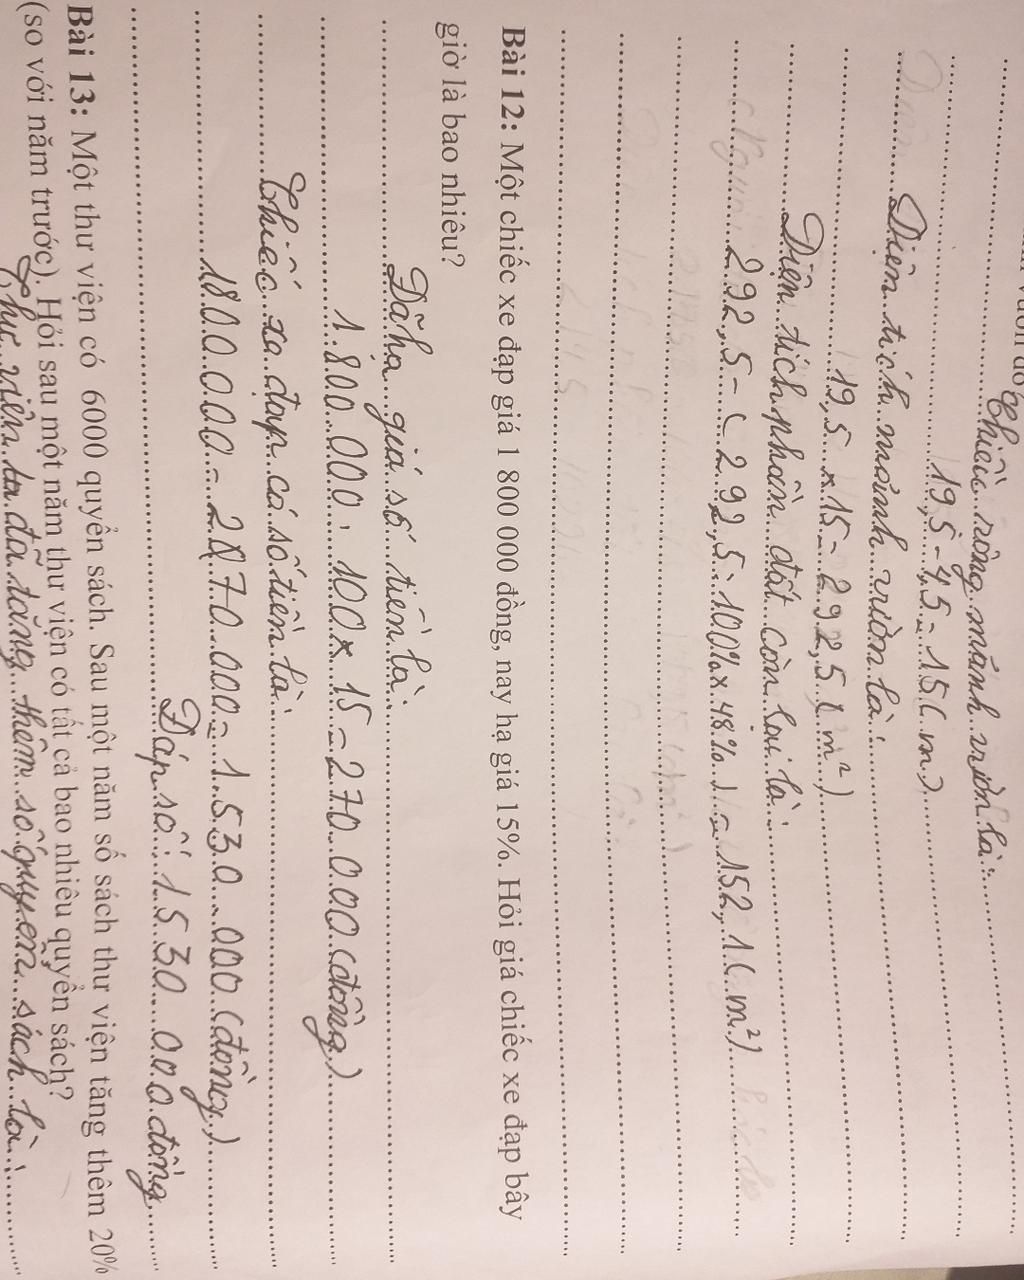 Chiều rộng mảnh vườn là:
19,5 - 4,5 = 15 (m)
Diện tích mảnh vườn là:
19,5 x 15 = 292,5 (m²)
Diện tích phần đất còn lại là:
292,5 - (292,5 : 100% x 48%) = 152,1 (m²)
Bài 12: Một chiếc xe đạp giá 1 800 000 đồng, nay hạ giá 15%. Hỏi giá chiếc xe đạp bây
giờ là bao nhiêu?
Đã hạ giá số tiền là:
1.800.000 : 100 x 15 = 270.000 (đồng)
Chiếc xe đạp có số tiền là:
1800.000 - 270.000 = 1.530.000 (đồng)
Đáp số: 1.530.000 đồng
Bài 13: Một thư viện có 6000 quyển sách. Sau một năm số sách thư viện tăng thêm 20%
(so với năm trước). Hỏi sau một năm thư viện có tất cả bao nhiêu quyển sách?
Thư viện ta đã tăng thêm số quyển sách là: